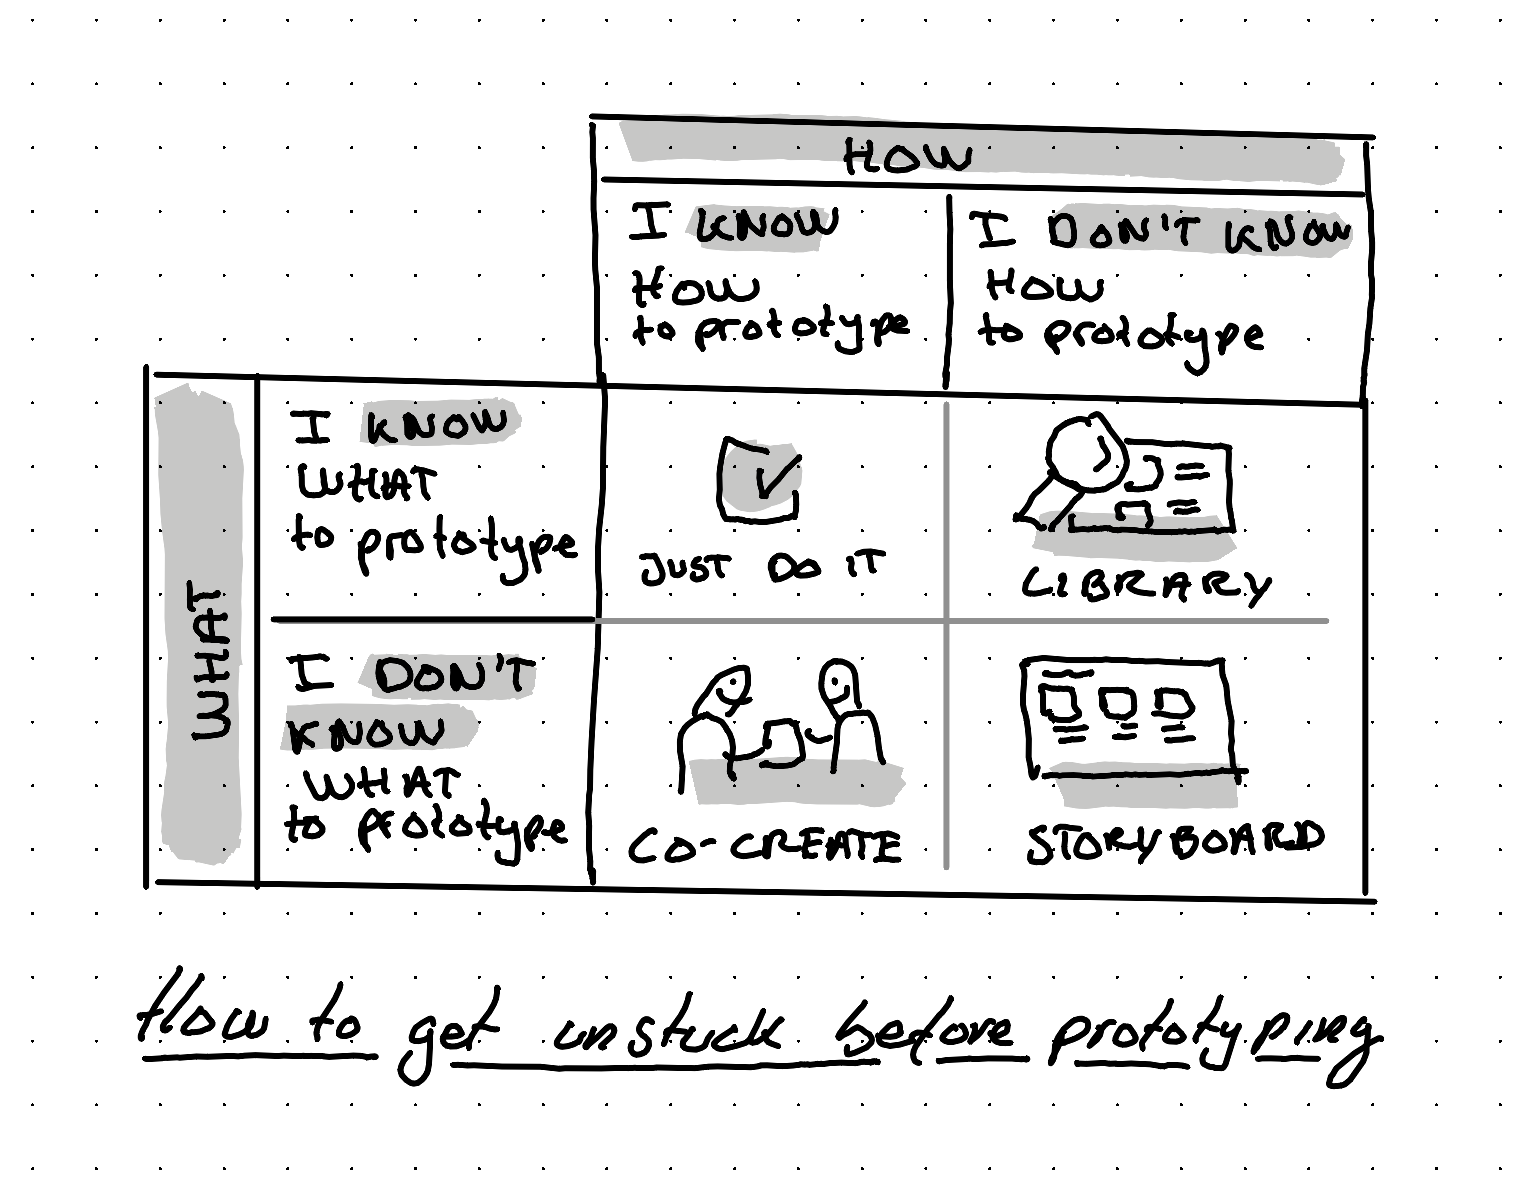 HOW
I KNOW
HOW
to prototype
I DON'T KNOW
HOW
to prototype
WHAT
I KNOW
WHAT
to prototype
JUST DO IT
LIBRARY
I DON'T
KNOW
WHAT
to prototype
CO-CREATE
STORYBOARD
How to get unstuck before prototyping